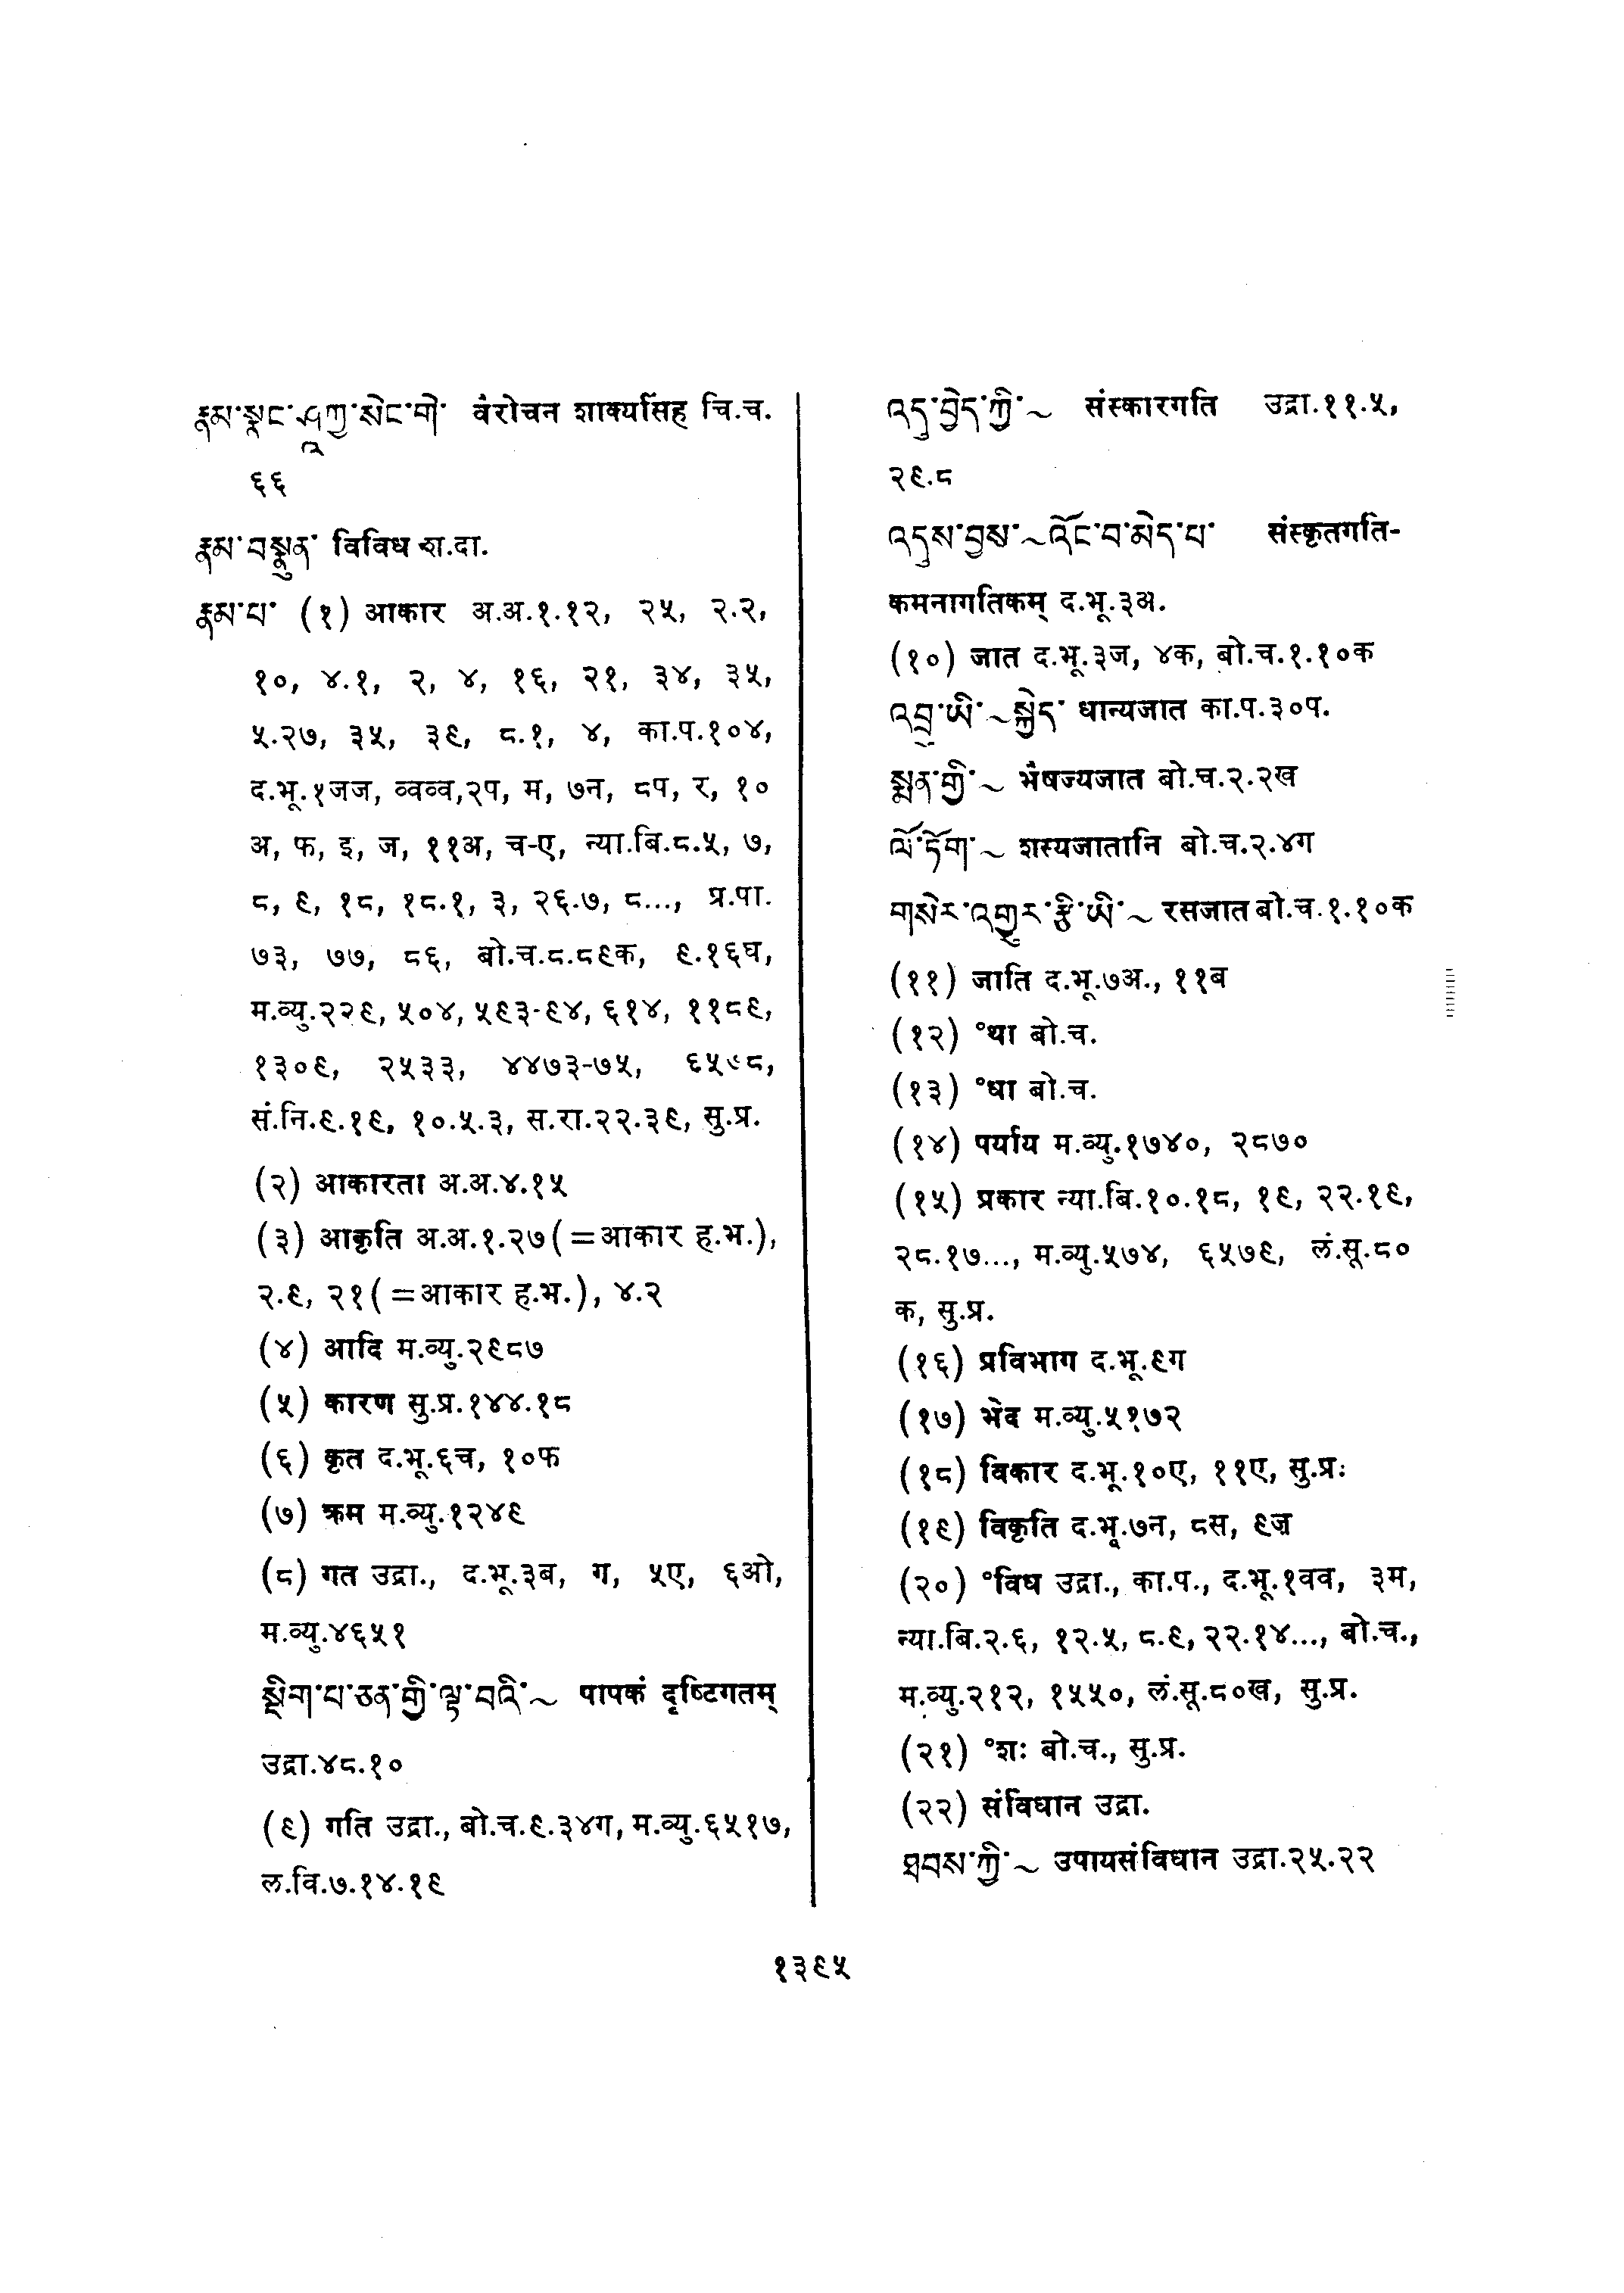 རྣམ་སྣང་ཤཱཀྱ་སེང་གེ་ वैरोचन शाक्यसिंह चि.च.
६६
རྣམ་བསྣུན་ विविध श.दा.
རྣམ་པ་ (१) आकार अ.अ.१.१२, २५, २.२,
१०, ४.१, २, ४, १६, २१, ३४, ३५,
५.२७, ३५, ३९, ८.१, ४, का.प.१०४,
द.भू.१जज, व्वव्व,२प, म, ७न, ८प, र, १०
अ, फ, इ, ज, ११अ, च-ए, न्या.बि.८.५, ७,
८, ९, १८, १८.१, ३, २६.७, ८..., प्र.पा.
७३, ७७, ८६, बो.च.८.८९क, ९.१६घ,
म.व्यु.२२९, ५०४, ५९३-९४, ६१४, ११८९,
१३०९, २५३३, ४४७३-७५,
सं.नि.९.१९, १०.५.३, स.रा.२२.३९, सु.प्र.
(२) आकारता अ.अ.४.१५
(३) आकृति अ.अ.१.२७(=आकार ह.भ.),
२.९, २१(=आकार ह.भ.), ४.२
(४) आदि म.व्यु.२९८७
(५) कारण सु.प्र.१४४.१८
(६) कृत द.भू.६च, १०फ
(७) क्रम म.व्यु.१२४९
(८) गत उद्रा., द.भू.३ब, ग, ५ए, ६ओ,
म.व्यु.४६५१
སྡིག་པ་ཅན་གྱི་ལྟ་བའི་~ पापकं दृष्टिगतम्
उद्रा.४८.१०
(९) गति उद्रा., बो.च.९.३४ग, म.व्यु.६५१७,
ल.वि.७.१४.१९
འདུ་བྱེད་ཀྱི་~ संस्कारगति उद्रा.११.५,
२९.८
འདུས་བྱས་~འོང་བ་མེད་པ་ संस्कृतगति-
कमनागतिकम् द.भू.३अ.
(१०) जात द.भू.३ज, ४क, बो.च.१.१०क
འབྲུ་ཡི་~སྐྱེད་ धान्यजात का.प.३०प.
སྨན་གྱི་~ भैषज्यजात बो.च.२.२ख
ལོ་ཏོག་~ शस्यजातानि बो.च.२.४ग
གསེར་འགྱུར་རྩི་ཡི་~ रसजात बो.च.१.१०क
(११) जाति द.भू.७अ., ११ब
(१२) °था बो.च.
(१३) °धा बो.च.
(१४) पर्याय म.व्यु.१७४०, २८७०
(१५) प्रकार न्या.बि.१०.१८, १९, २२.१९,
२८.१७..., म.व्यु.५७४, ६५७९, लं.सू.८०
क, सु.प्र.
(१६) प्रविभाग द.भू.९ग
(१७) भेद म.व्यु.५१७२
(१८) विकार द.भू.१०ए, ११ए, सु.प्र:
(१९) विकृति द.भू.७न, ८स, ९ज
(२०) °विध उद्रा., का.प., द.भू.१वव, ३म,
न्या.बि.२.६, १२.५, ८.९, २२.१४..., बो.च.,
म.व्यु.२१२, १५५०, लं.सू.८०ख, सु.प्र.
(२१) °शः बो.च., सु.प्र.
(२२) संविधान उद्रा.
ཐབས་ཀྱི་~ उपायसंविधान उद्रा.२५.२२
१३९५